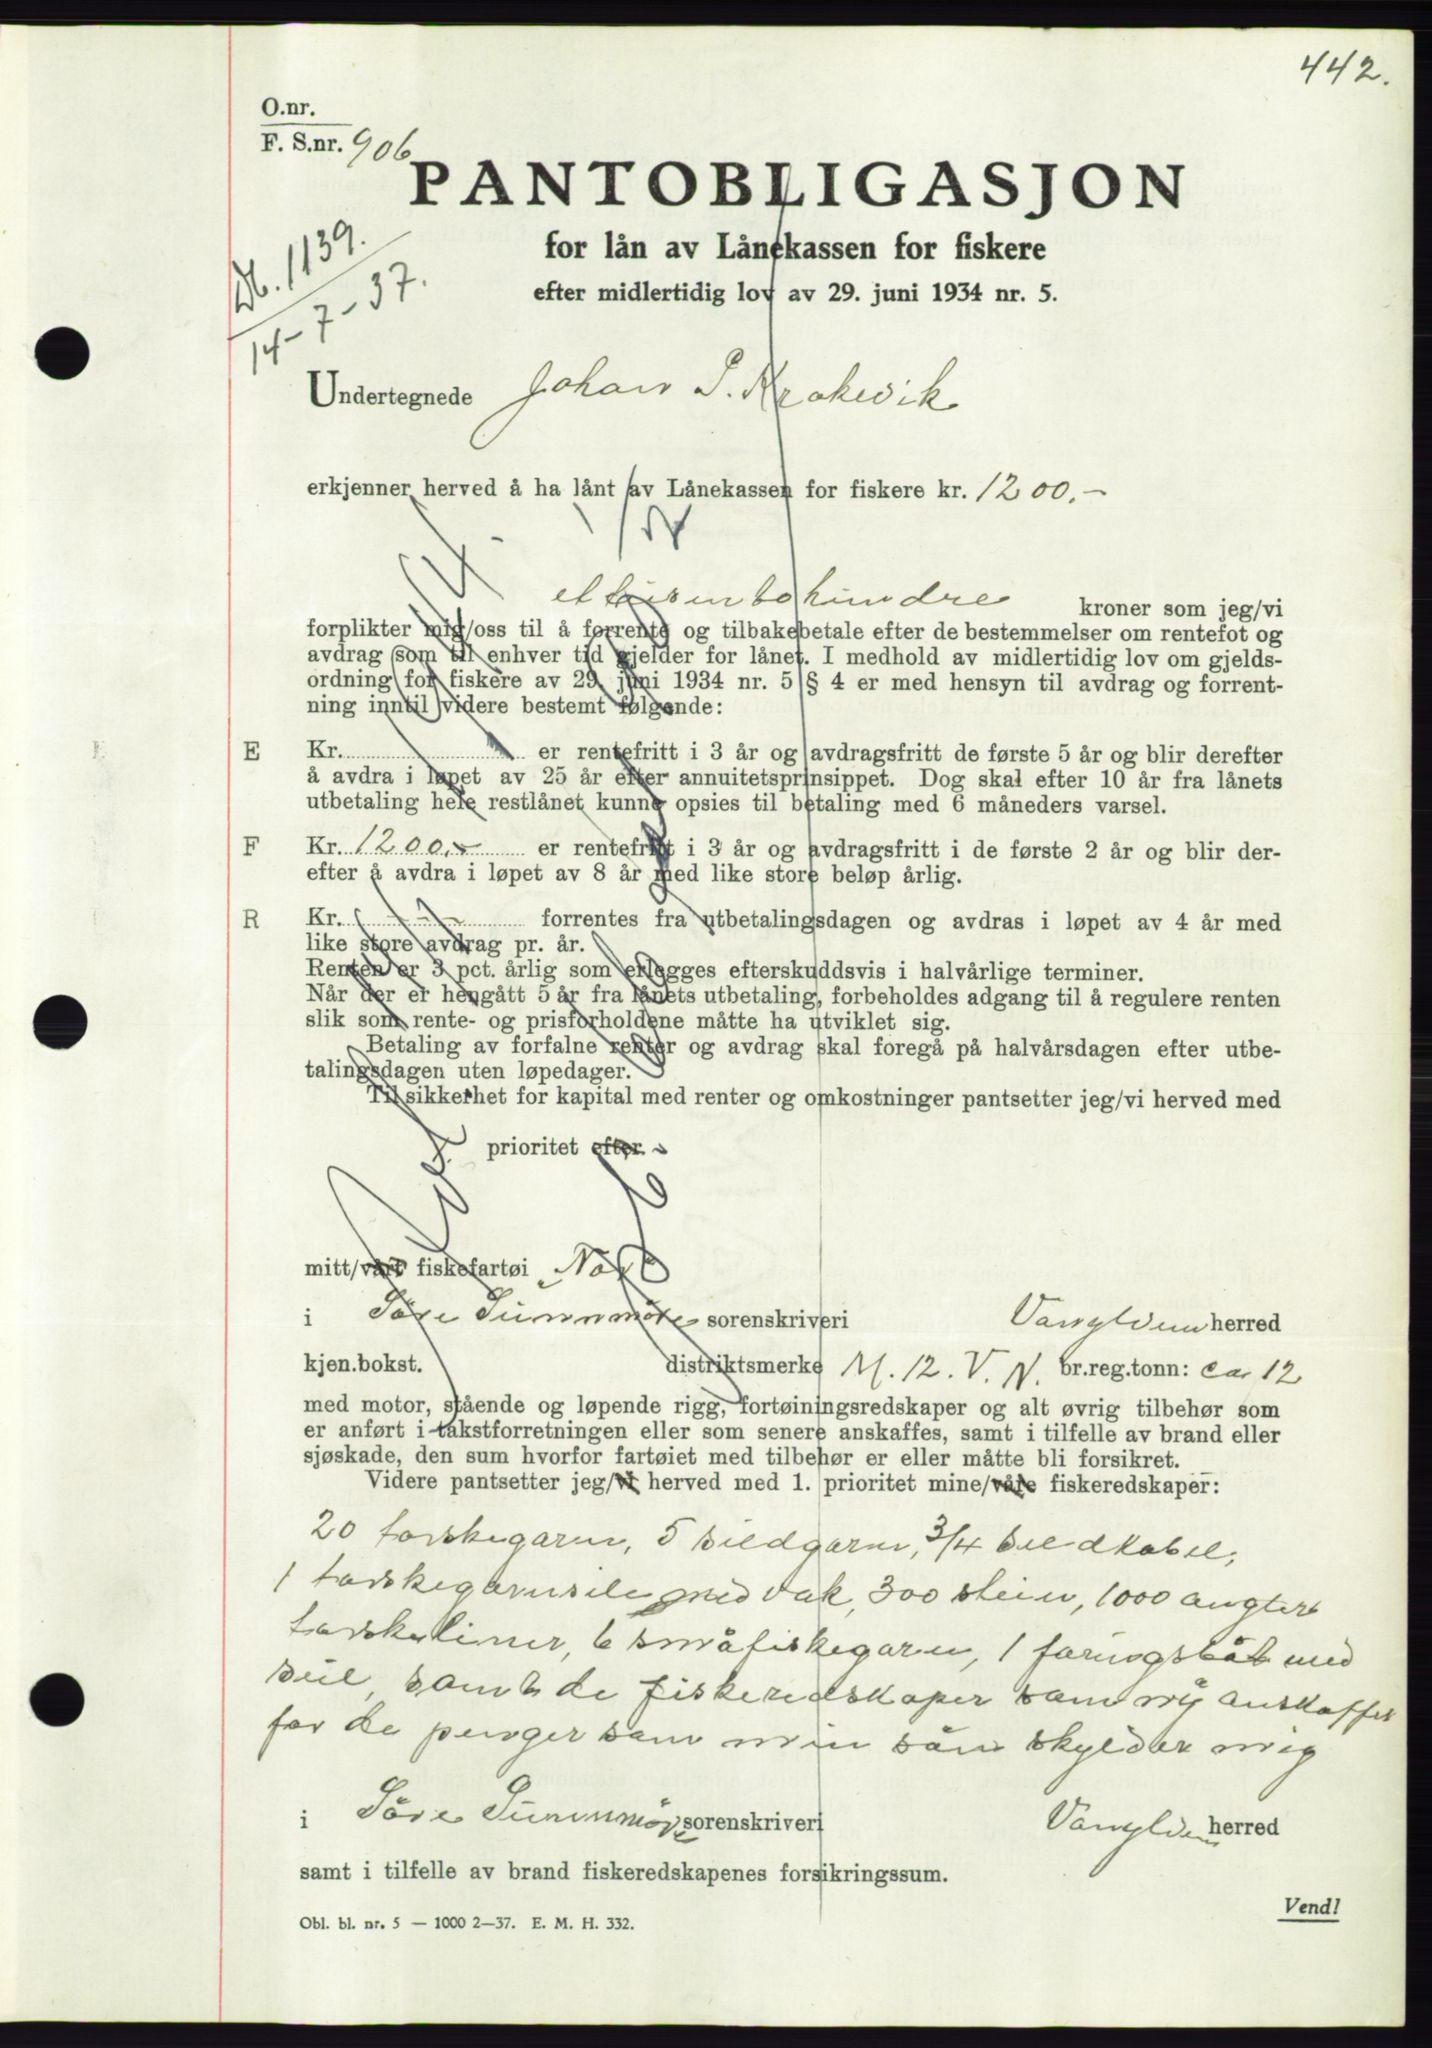 442.
O.nr.
F. S.nr. 906
PANTOBLIGASJON
for lån av Lånekassen for fiskere
efter midlertidig lov av 29. juni 1934 nr. 5.
Db. 1139.
14-7-37.
Undertegnede Johan P. Krakevik
erkjenner herved å ha lånt av Lånekassen for fiskere kr. 1200.-
ettusentohundre kroner som jeg/vi
forplikter mig/oss til å forrente og tilbakebetale efter de bestemmelser om rentefot og
avdrag som til enhver tid gjelder for lånet. I medhold av midlertidig lov om gjelds-
ordning for fiskere av 29. juni 1934 nr. 5 § 4 er med hensyn til avdrag og forrent-
ning inntil videre bestemt følgende:
E Kr. er rentefritt i 3 år og avdragsfritt de første 5 år og blir derefter
å avdra i løpet av 25 år efter annuitetsprinsippet. Dog skal efter 10 år fra lånets
utbetaling hele restlånet kunne opsies til betaling med 6 måneders varsel.
F Kr. 1200.- er rentefritt i 3 år og avdragsfritt i de første 2 år og blir der-
efter å avdra i løpet av 8 år med like store beløp årlig.
R Kr. - - - forrentes fra utbetalingsdagen og avdras i løpet av 4 år med
like store avdrag pr. år.
Renten er 3 pct. årlig som erlegges efterskuddsvis i halvårlige terminer.
Når der er hengått 5 år fra lånets utbetaling, forbeholdes adgang til å regulere renten
slik som rente- og prisforholdene måtte ha utviklet sig.
Betaling av forfalne renter og avdrag skal foregå på halvårsdagen efter utbe-
talingsdagen uten løpedager.
Til sikkerhet for kapital med renter og omkostninger pantsetter jeg/vi herved med
prioritet efter
mitt/vårt fiskefartøi
i Söre Sunnmöre sorenskriveri Vanylven herred
kjen.bokst. distriktsmerke M. 12. V. N. br.reg.tonn: ca 12
med motor, stående og løpende rigg, fortøiningsredskaper og alt øvrig tilbehør som
er anført i takstforretningen eller som senere anskaffes, samt i tilfelle av brand eller
sjøskade, den sum hvorfor fartøiet med tilbehør er eller måtte bli forsikret.
Videre pantsetter jeg/vi herved med 1. prioritet mine/våre fiskeredskaper:
20 torskegarn, 5 sildgarn, 3/4 sildkabel,
1 torskegarnsile med vak, 300 stein, 1000 angler
torskeliner, 6 småfiskegarn, 1 færingsbåt med
seil, samt de fiskeredskaper som ny anskaffes
for de penger som min sån skylder mig
i Söre Sunnmöre sorenskriveri Vanylven herred
samt i tilfelle av brand fiskeredskapenes forsikringssum.
Vend!
Obl. bl. nr. 5 — 1000 2—37. E. M. H. 332.